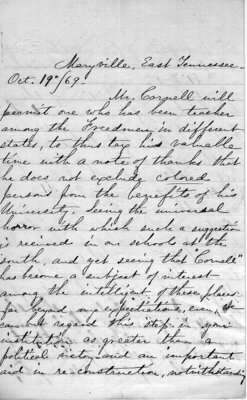 Maryville, East Tennessee-
Oct. 19th/69-
Mr. Cornell will
permit one who has been teacher
among the Freedmen in different
states, to thus tax his valuable
time with a note of thanks that
he does not exclude colored
persons from the benefits of his
University. Seeing the universal
horror with which such a suggestion
is received in our schools at the
south, and yet seeing that "Cornell"
has become a subject of interest
among the intelligent of these places
far beyond my expectations, even, we
cannot regard this step in your
institution as greater than a
political victory, and an important
aid in re-construction, notwithstanding